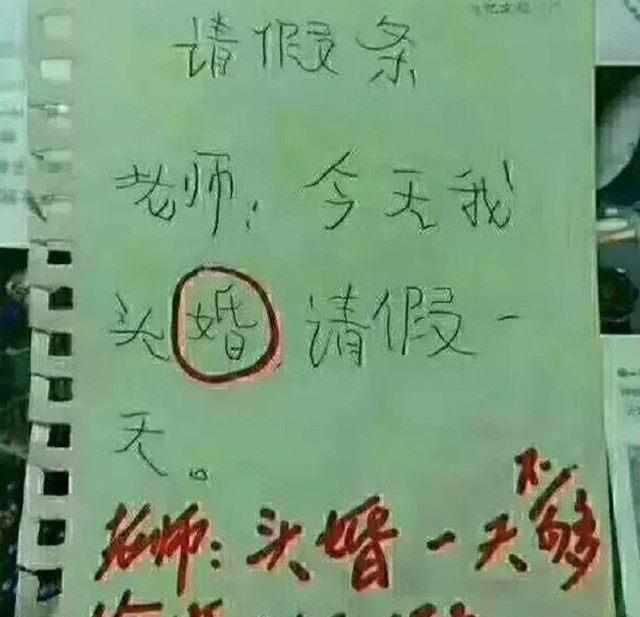 请假条
老师：今天我
头婚，请假一
天。
老师：头婚一天不够